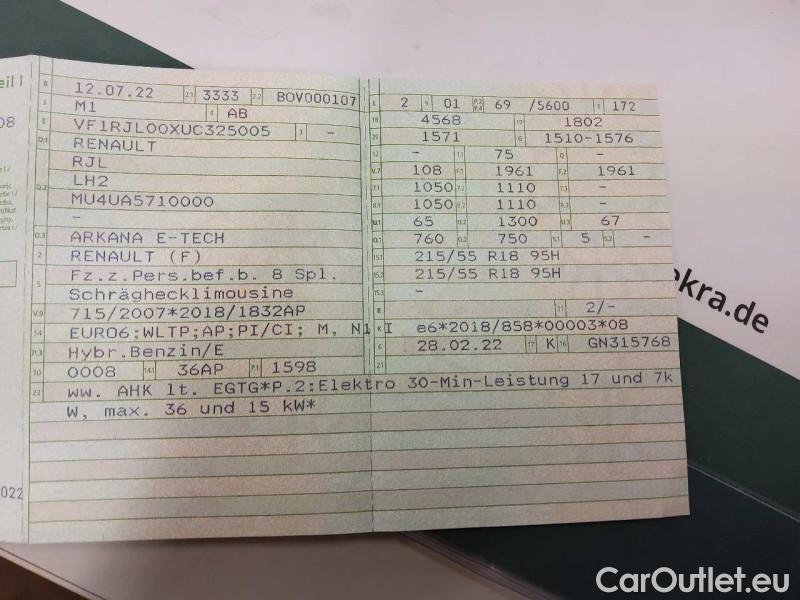 eil I
B 12.07.22 2.1 3333 2.2 BOV000107
J M1 4 AB
E VF1RJL00XUC325005 3 -
D.1 RENAULT
RJL
D.2 LH2
MU4UA5710000
-
D.3 ARKANA E-TECH
2 RENAULT (F)
5 Fz.z.Pers.bef.b. 8 Spl.
Schräghecklimousine
V.9 715/2007*2018/1832AP
14 EURO6;WLTP;AP;PI/CI; M, N1 I
P.3 Hybr.Benzin/E
10 0008 14.1 36AP P.1 1598
L 2 9 01 P.2 P.4 69 /5600 T 172
18 4568 19 1802
20 1571 G 1510-1576
12 - 13 75 Q -
V.7 108 F.1 1961 F.2 1961
7.1 1050 7.2 1110 7.3 -
8.1 1050 8.2 1110 8.3 -
U.1 65 U.2 1300 U.3 67
O.1 760 O.2 750 S.1 5 S.2 -
15.1 215/55 R18 95H
15.2 215/55 R18 95H
15.3 -
R 11 2/-
K e6*2018/858*00003*08
6 28.02.22 17 K 16 GN315768
21
22 ww. AHK lt. EGTG*P.2:Elektro 30-Min-Leistung 17 und 7k
W, max. 36 und 15 kW*
08
022
ekra.de
CarOutlet.eu